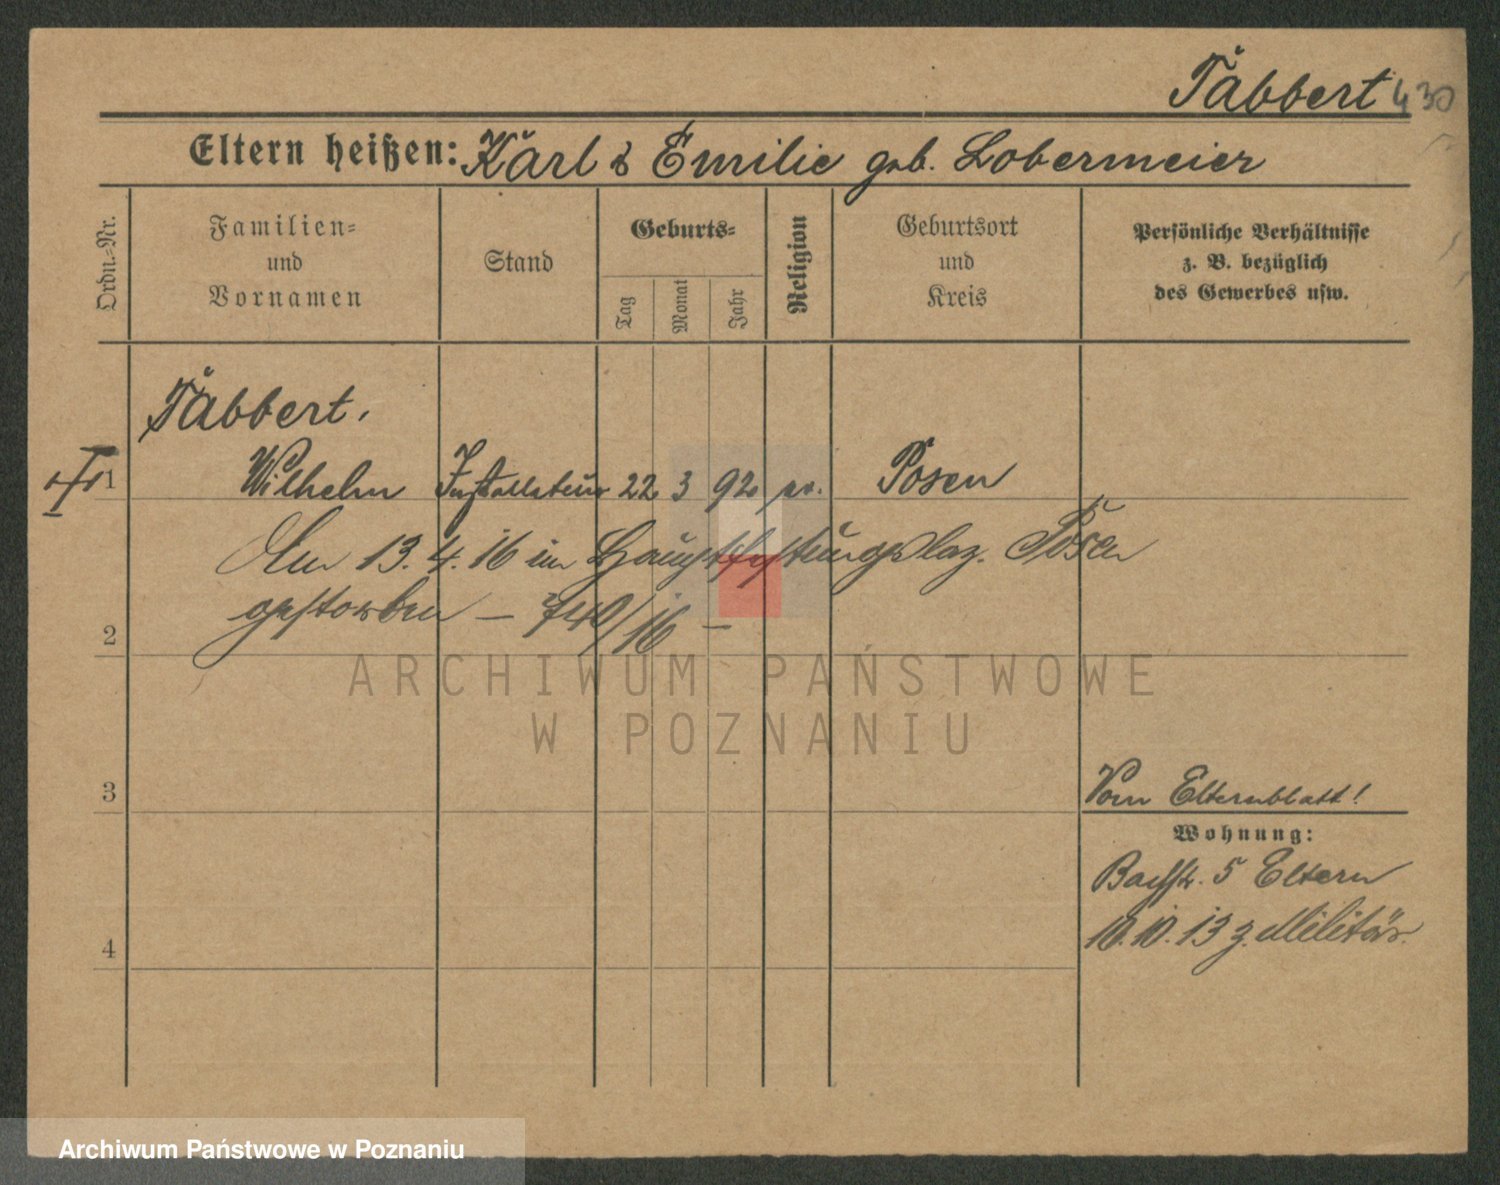 Tabbert 430
Eltern heißen: Karl & Emilie geb. Lobermeier
Ordn.-Nr.
Familien-
und
Vornamen
Stand
Geburts-
Tag
Monat
Jahr
Religion
Geburtsort
und
Kreis
Persönliche Verhältnisse
z. B. bezüglich
des Gewerbes usw.
Tabbert.
1 Wilhelm Installateur 22 3 92 ev. Posen
Am 13.4.16 im Hauptfestungslaz. Posen
2 gestorben – 740/16 –
ARCHIWUM PAŃSTWOWE
W POZNANIU
3
Vom Elternblatt!
Wohnung:
Bachstr. 5 Eltern
10.10.13 z. Militär.
4
Archiwum Państwowe w Poznaniu